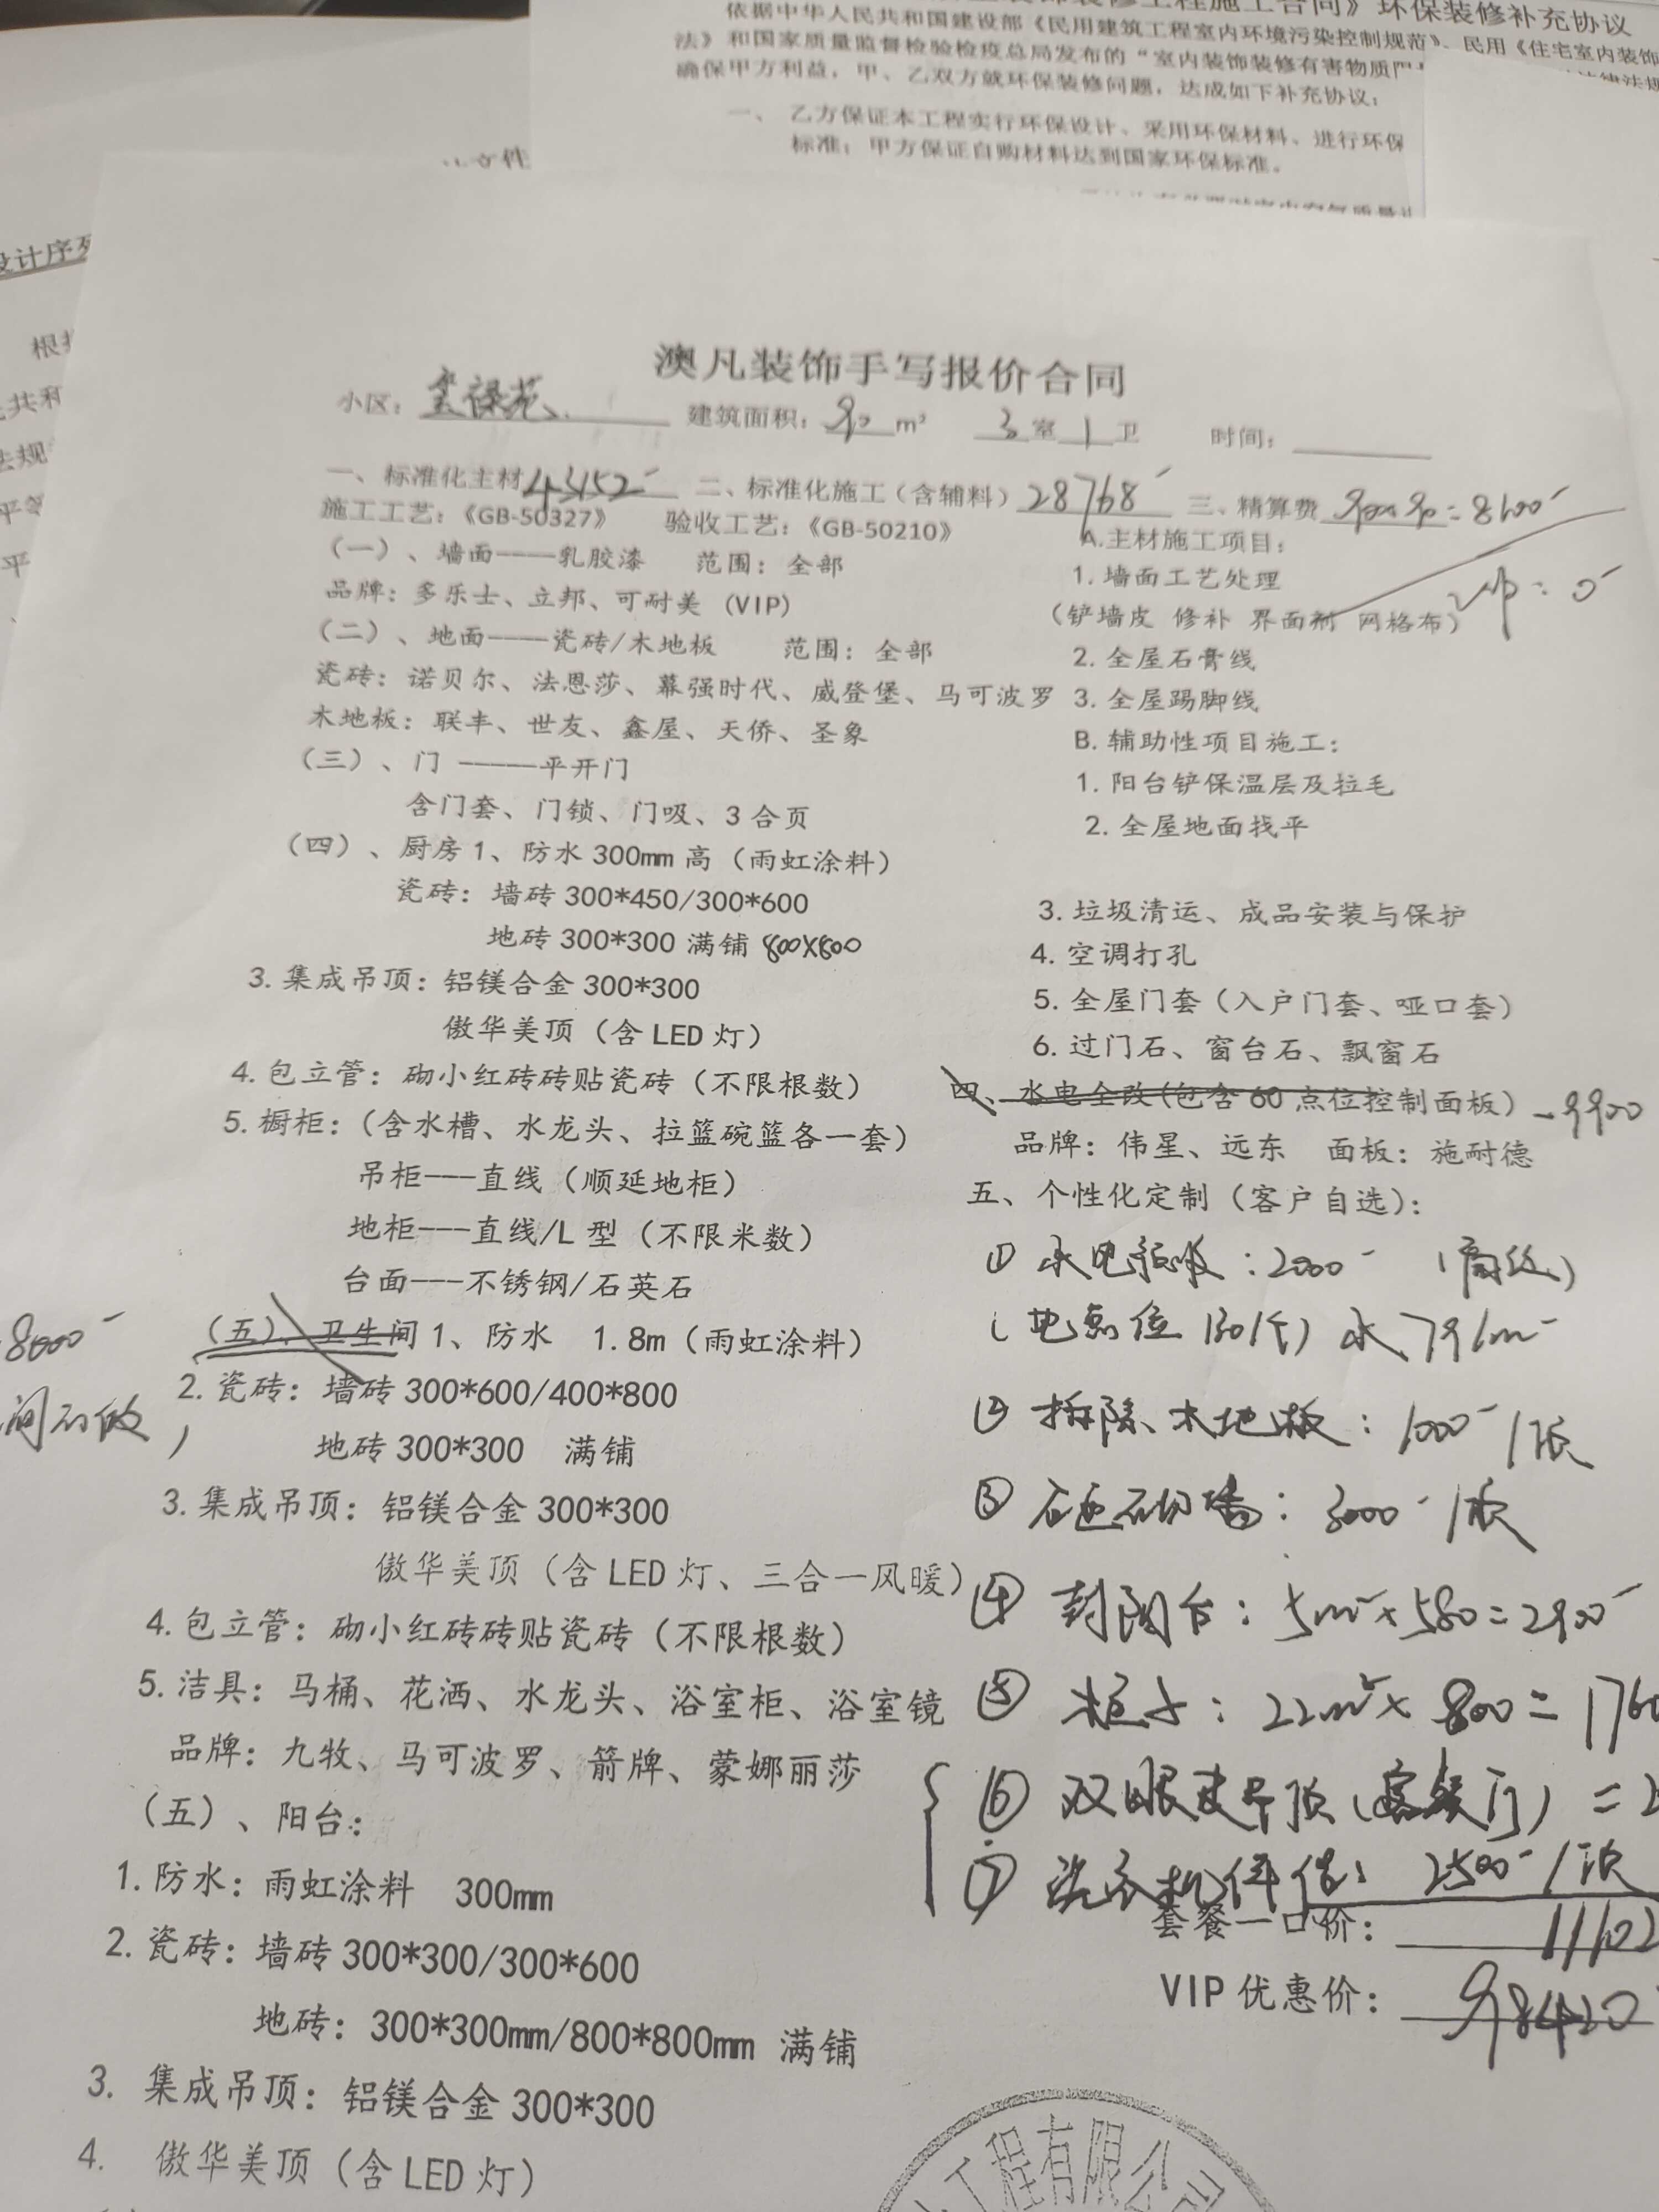 装饰装修工程施工合同》环保装修补充协议
依据中华人民共和国建设部《民用建筑工程室内环境污染控制规范》、民用《住宅室内装饰
法》和国家质量监督检验检疫总局发布的“室内装饰装修有害物质
确保甲方利益，甲、乙双方就环保装修问题，达成如下补充协议：
一、乙方保证本工程实行环保设计、采用环保材料、进行环保
标准；甲方保证自购材料达到国家环保标准。
文件
设计序列
根据
共和
法规
平等
平
澳凡装饰手写报价合同
小区： 建筑面积：90 m² 3室1卫 时间：
一、标准化主材43152 二、标准化施工（含辅料）28768 三、精算费 =8100
施工工艺：《GB-50327》 验收工艺：《GB-50210》
VIP：0
（一）、墙面----乳胶漆 范围：全部
品牌：多乐士、立邦、可耐美 (VIP)
（二）、地面----瓷砖/木地板 范围：全部
瓷砖：诺贝尔、法恩莎、幕强时代、威登堡、马可波罗
木地板：联丰、世友、鑫屋、天侨、圣象
（三）、门 -----平开门
含门套、门锁、门吸、3合页
（四）、厨房 1、防水 300mm 高（雨虹涂料）
瓷砖：墙砖 300*450/300*600
地砖 300*300 满铺 800X800
3.集成吊顶：铝镁合金 300*300
傲华美顶（含 LED 灯）
4.包立管：砌小红砖砖贴瓷砖（不限根数）
5.橱柜：（含水槽、水龙头、拉篮碗篮各一套）
吊柜---直线（顺延地柜）
地柜---直线/L 型（不限米数）
台面---不锈钢/石英石
8000
（五）、卫生间 1、防水 1.8m（雨虹涂料）
2.瓷砖：墙砖 300*600/400*800
间不做
地砖 300*300 满铺
3.集成吊顶：铝镁合金 300*300
傲华美顶（含 LED 灯、三合一风暖）
4.包立管：砌小红砖砖贴瓷砖（不限根数）
5.洁具：马桶、花洒、水龙头、浴室柜、浴室镜
品牌：九牧、马可波罗、箭牌、蒙娜丽莎
（五）、阳台：
1.防水：雨虹涂料 300mm
2.瓷砖：墙砖 300*300/300*600
地砖：300*300mm/800*800mm 满铺
3. 集成吊顶：铝镁合金 300*300
4. 傲华美顶（含 LED 灯）
A.主材施工项目：
1.墙面工艺处理
（铲墙皮 修补 界面剂 网格布）
2.全屋石膏线
3.全屋踢脚线
B.辅助性项目施工：
1.阳台铲保温层及拉毛
2.全屋地面找平
3.垃圾清运、成品安装与保护
4.空调打孔
5.全屋门套（入户门套、哑口套）
6.过门石、窗台石、飘窗石
四、水电全改（包含 60 点位控制面板） -9900
品牌：伟星、远东 面板：施耐德
五、个性化定制（客户自选）：
① 水电预收：2000
水 79/m
② 拆除木地板：1000/项
③ 砌墙：3000/项
④ 封阳台：5m²×580=2900
⑤ 柜子：22m²×800=1760
⑥ 双眼皮吊顶（客餐厅）=2
⑦ 洗衣机伴侣：2500/项
套餐一口价： 11102
VIP 优惠价： 98420
工程有限公司